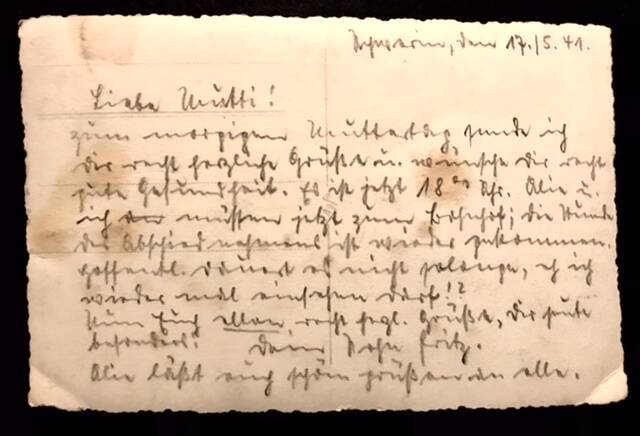 Schwerin, den 17./5.41.
Liebe Mutti!
zum morgigen Muttertag sende ich
dir recht herzliche Grüße u. wünsche dir recht
gute Gesundheit. Es ist jetzt 18⁰⁰ Uhr. Alie u.
ich müssen jetzt zum Bahnhof; die Stunde
des Abschiednehmens ist wieder gekommen.
Hoffentl. dauert es nicht solange, eh ich
wieder mal einsehen darf!?
Nun Euch allen, recht herzl. Grüße, dir heute
besonders! Dein Sohn Fritz.
Alie läßt euch schön grüßen an alle.